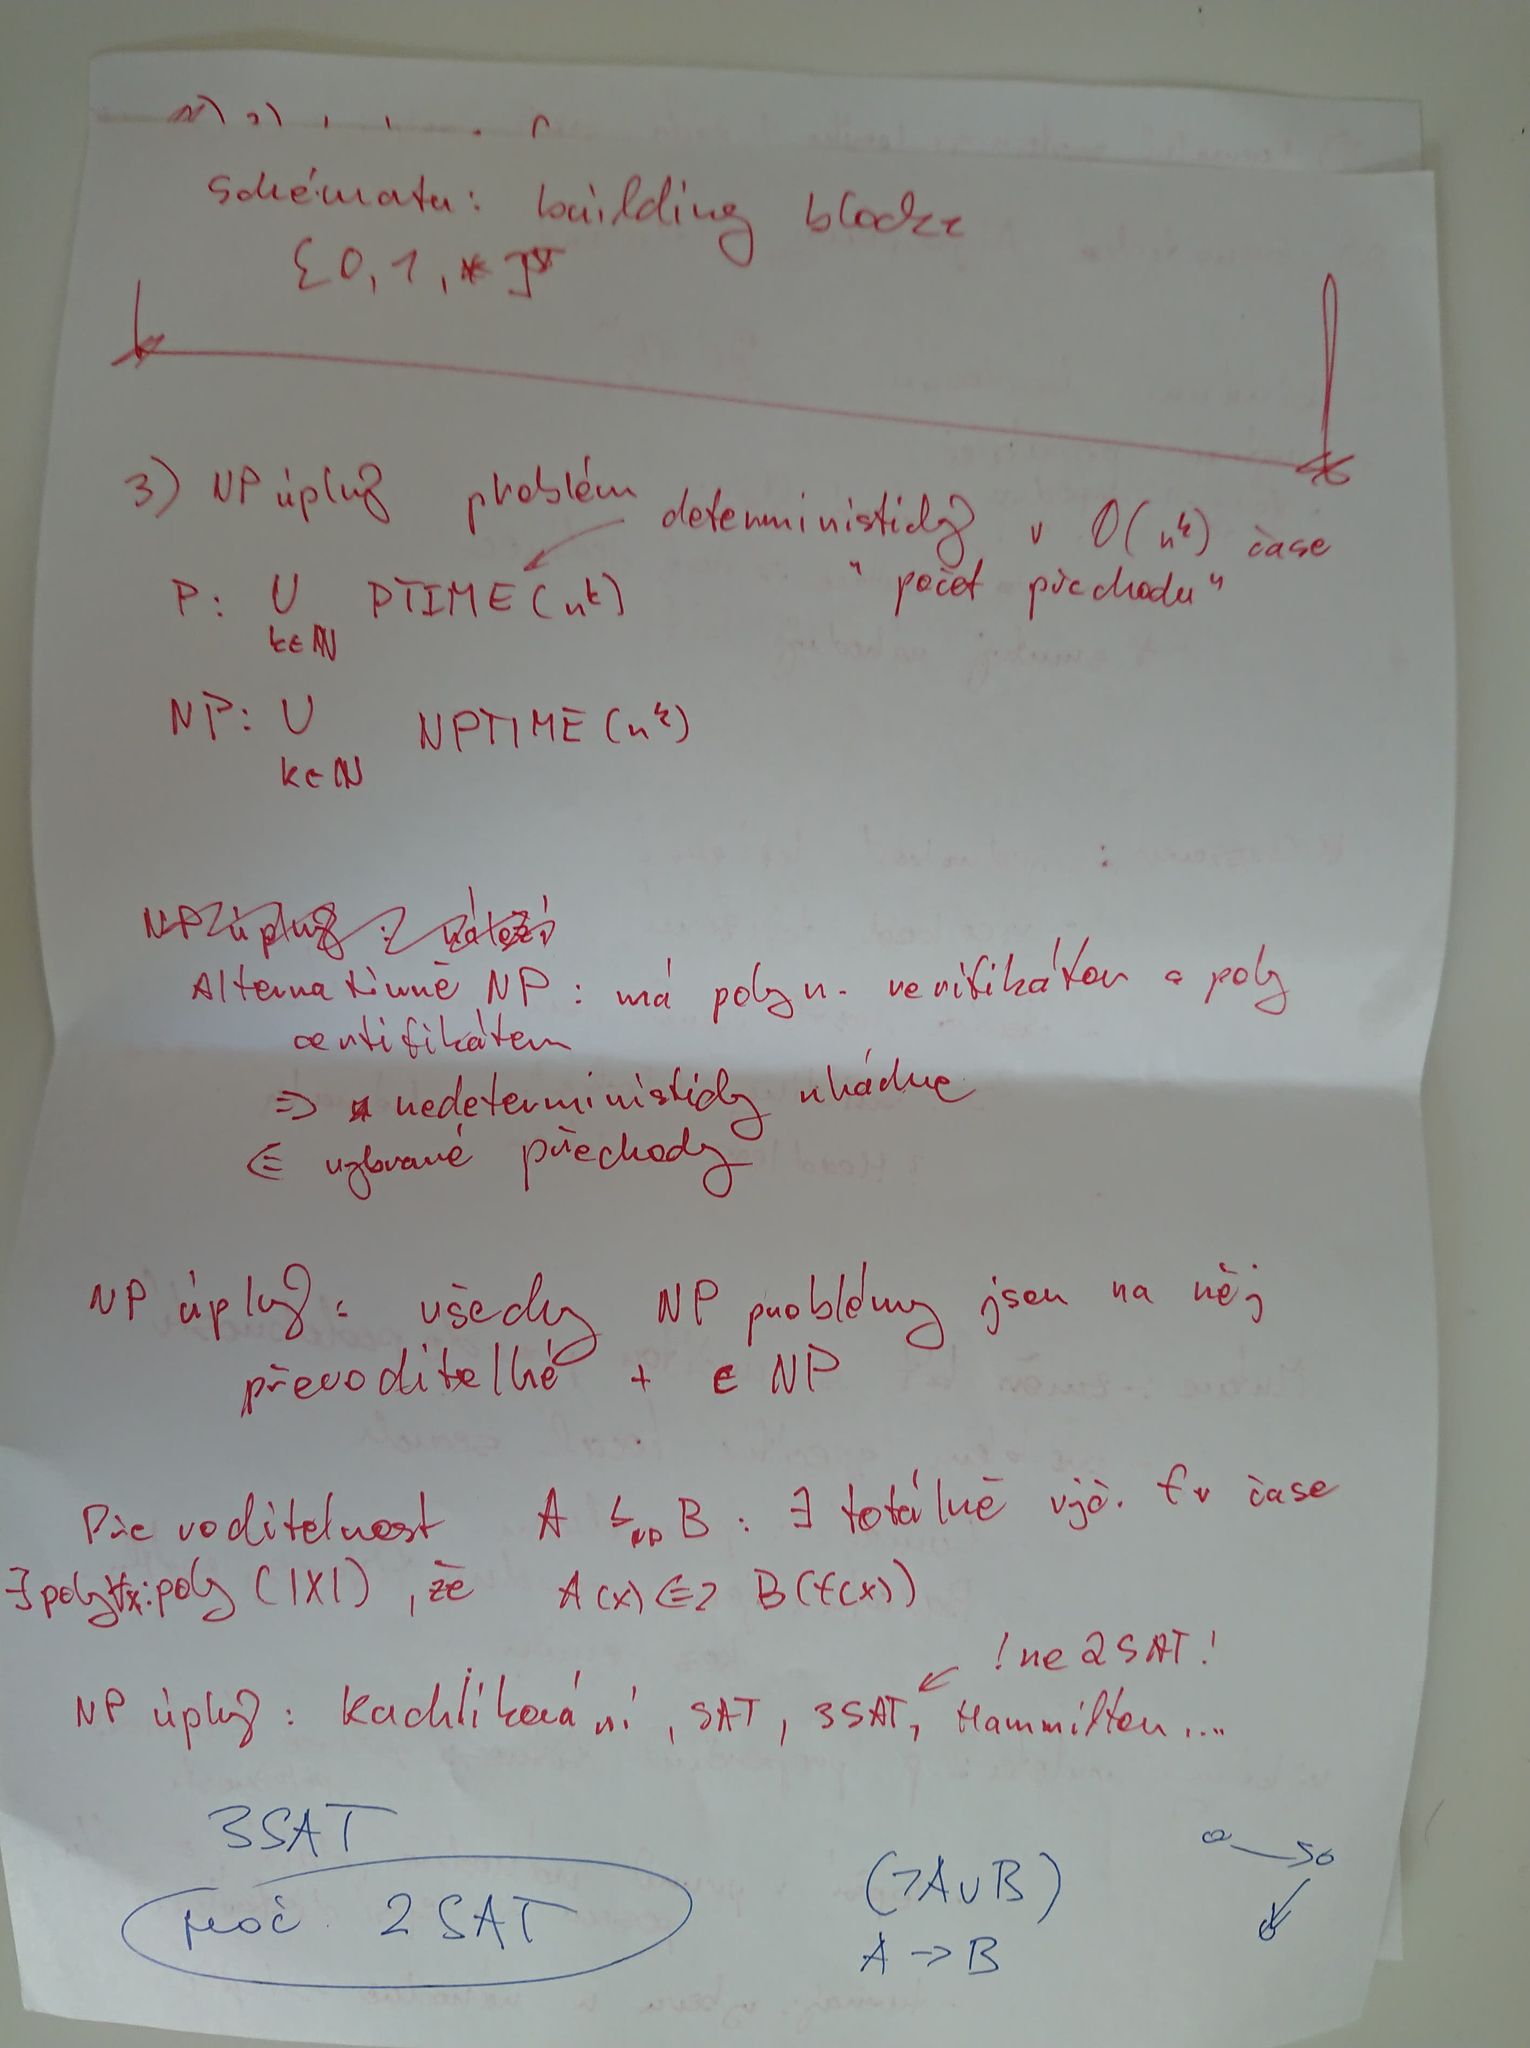 Schémata: building blocks
{0, 1, *}*
3) NP úplný problém
deterministicky v O(n^k) čase
"počet přechodu"
P: ∪ PTIME(n^k)
k∈ℕ
NP: ∪ NPTIME(n^k)
k∈ℕ
NP úplný : náleží
Alternativně NP: má polyn. verifikátor s poly
certifikátem
=> nedeterministicky uhádne
<= vybrané přechody
NP úplný: všechny NP problémy jsou na něj
převoditelné + ∈ NP
Převoditelnost A ≤NP B: ∃ totálně vyč. f v čase
∃poly∀x:poly(|X|), že A(x) <=> B(f(x))
! ne 2SAT!
NP úplný: Kachlíkování, SAT, 3SAT, Hammilton....
3SAT
proč 2SAT
(¬A∪B)
A -> B